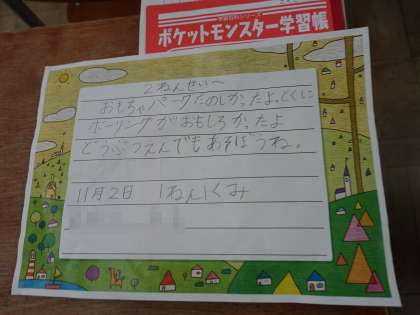 ポケットモンスター学習帳
2ねんせいへ
おもちゃパーク たのしかったよ。とくに
ボーリングがおもしろかったよ
どうぶつえんでもあそぼうね。
11月2日 1ねん1くみ